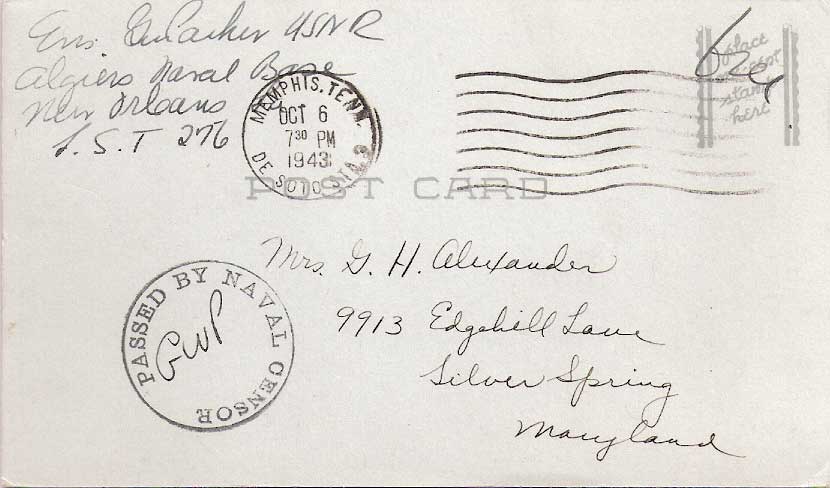 Ens. GW Parker USNR
Algiers Naval Base
New Orleans
L.S.T 276
MEMPHIS, TENN.
OCT 6
7 30 PM
1943
DE SOTO STA.
Free
place
stamp
here
POST CARD
PASSED BY NAVAL CENSOR
GWP
Mrs. G. H. Alexander
9913 Edgehill Lane
Silver Spring
Maryland